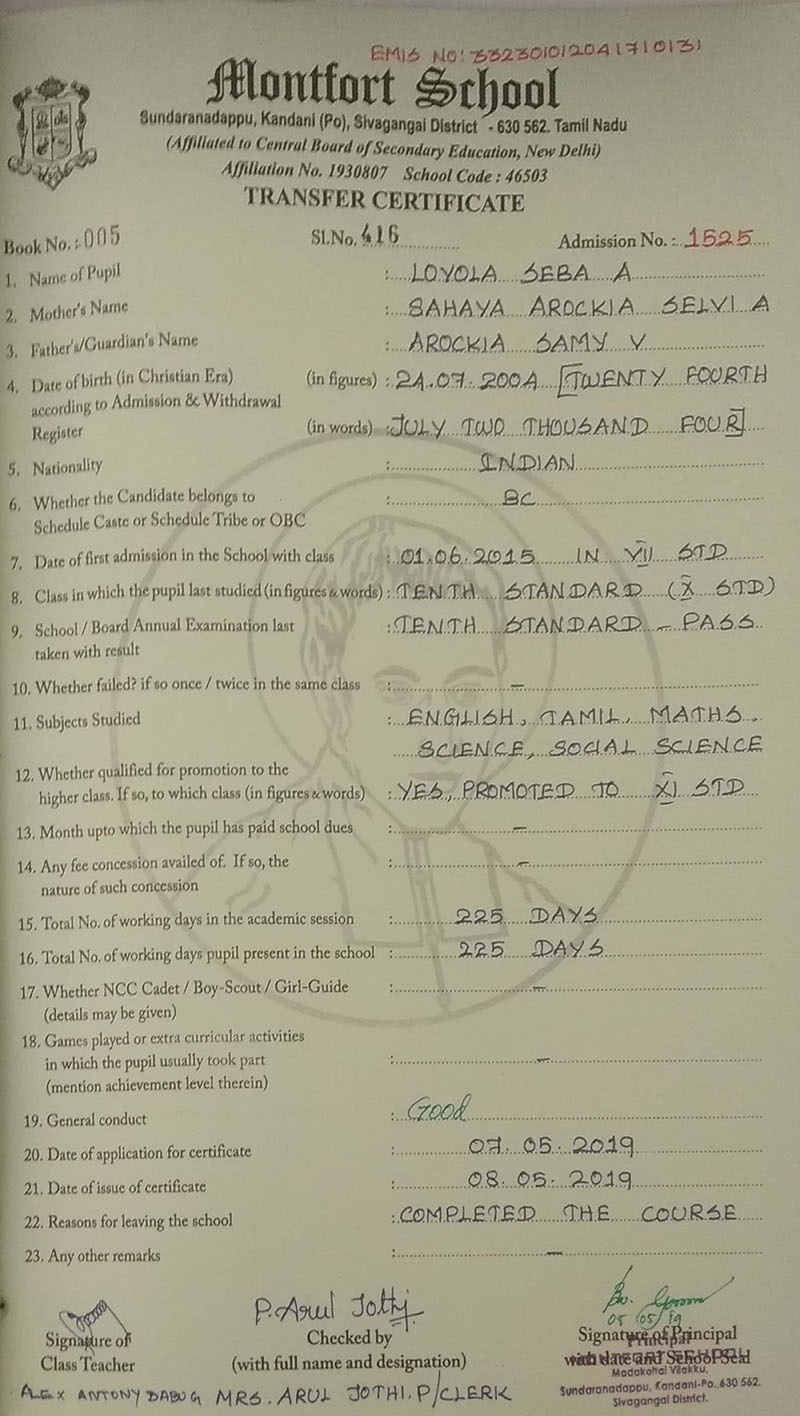 EMIS NO: 33230101204171013)
Montfort School
Sundaranadappu, Kandani (Po), Sivagangai District - 630 562. Tamil Nadu
(Affiliated to Central Board of Secondary Education, New Delhi)
Affiliation No. 1930807 School Code : 46503
TRANSFER CERTIFICATE
Book No. : 005 Sl.No. 416 Admission No. : 1525
1. Name of Pupil : LOYOLA SEBA A
2. Mother's Name : SAHAYA AROCKIA SELVI A
3. Father's/Guardian's Name : AROCKIA SAMY V
4. Date of birth (in Christian Era) (in figures) : 24.07.2004 [TWENTY FOURTH
according to Admission & Withdrawal
Register (in words) : JULY TWO THOUSAND FOUR]
5. Nationality : INDIAN
6. Whether the Candidate belongs to : BC
Schedule Caste or Schedule Tribe or OBC
7. Date of first admission in the School with class : 01.06.2015 IN VII STD
8. Class in which the pupil last studied (in figures & words) : TENTH STANDARD (X STD)
9. School / Board Annual Examination last : TENTH STANDARD - PASS
taken with result
10. Whether failed? if so once / twice in the same class : -
11. Subjects Studied : ENGLISH, TAMIL, MATHS,
SCIENCE, SOCIAL SCIENCE
12. Whether qualified for promotion to the
higher class. If so, to which class (in figures & words) : YES, PROMOTED TO XI STD
13. Month upto which the pupil has paid school dues : -
14. Any fee concession availed of. If so, the : -
nature of such concession
15. Total No. of working days in the academic session : 225 DAYS
16. Total No. of working days pupil present in the school : 225 DAYS
17. Whether NCC Cadet / Boy-Scout / Girl-Guide : -
(details may be given)
18. Games played or extra curricular activities
in which the pupil usually took part : -
(mention achievement level therein)
19. General conduct : Good
20. Date of application for certificate : 07.05.2019
21. Date of issue of certificate : 08.05.2019
22. Reasons for leaving the school : COMPLETED THE COURSE
23. Any other remarks : -
P. Arul Jothi
05/05/19
Signature of Checked by Signature of Principal
Principal
Class Teacher (with full name and designation) with date and School Seal
MONTFORT SCHOOL
Madakottai Vilakku,
ALEX ANTONY DABUG MRS. ARUL JOTHI. P/CLERK Sundaranadappu, Kandani-Po.,630 562,
Sivagangai District.